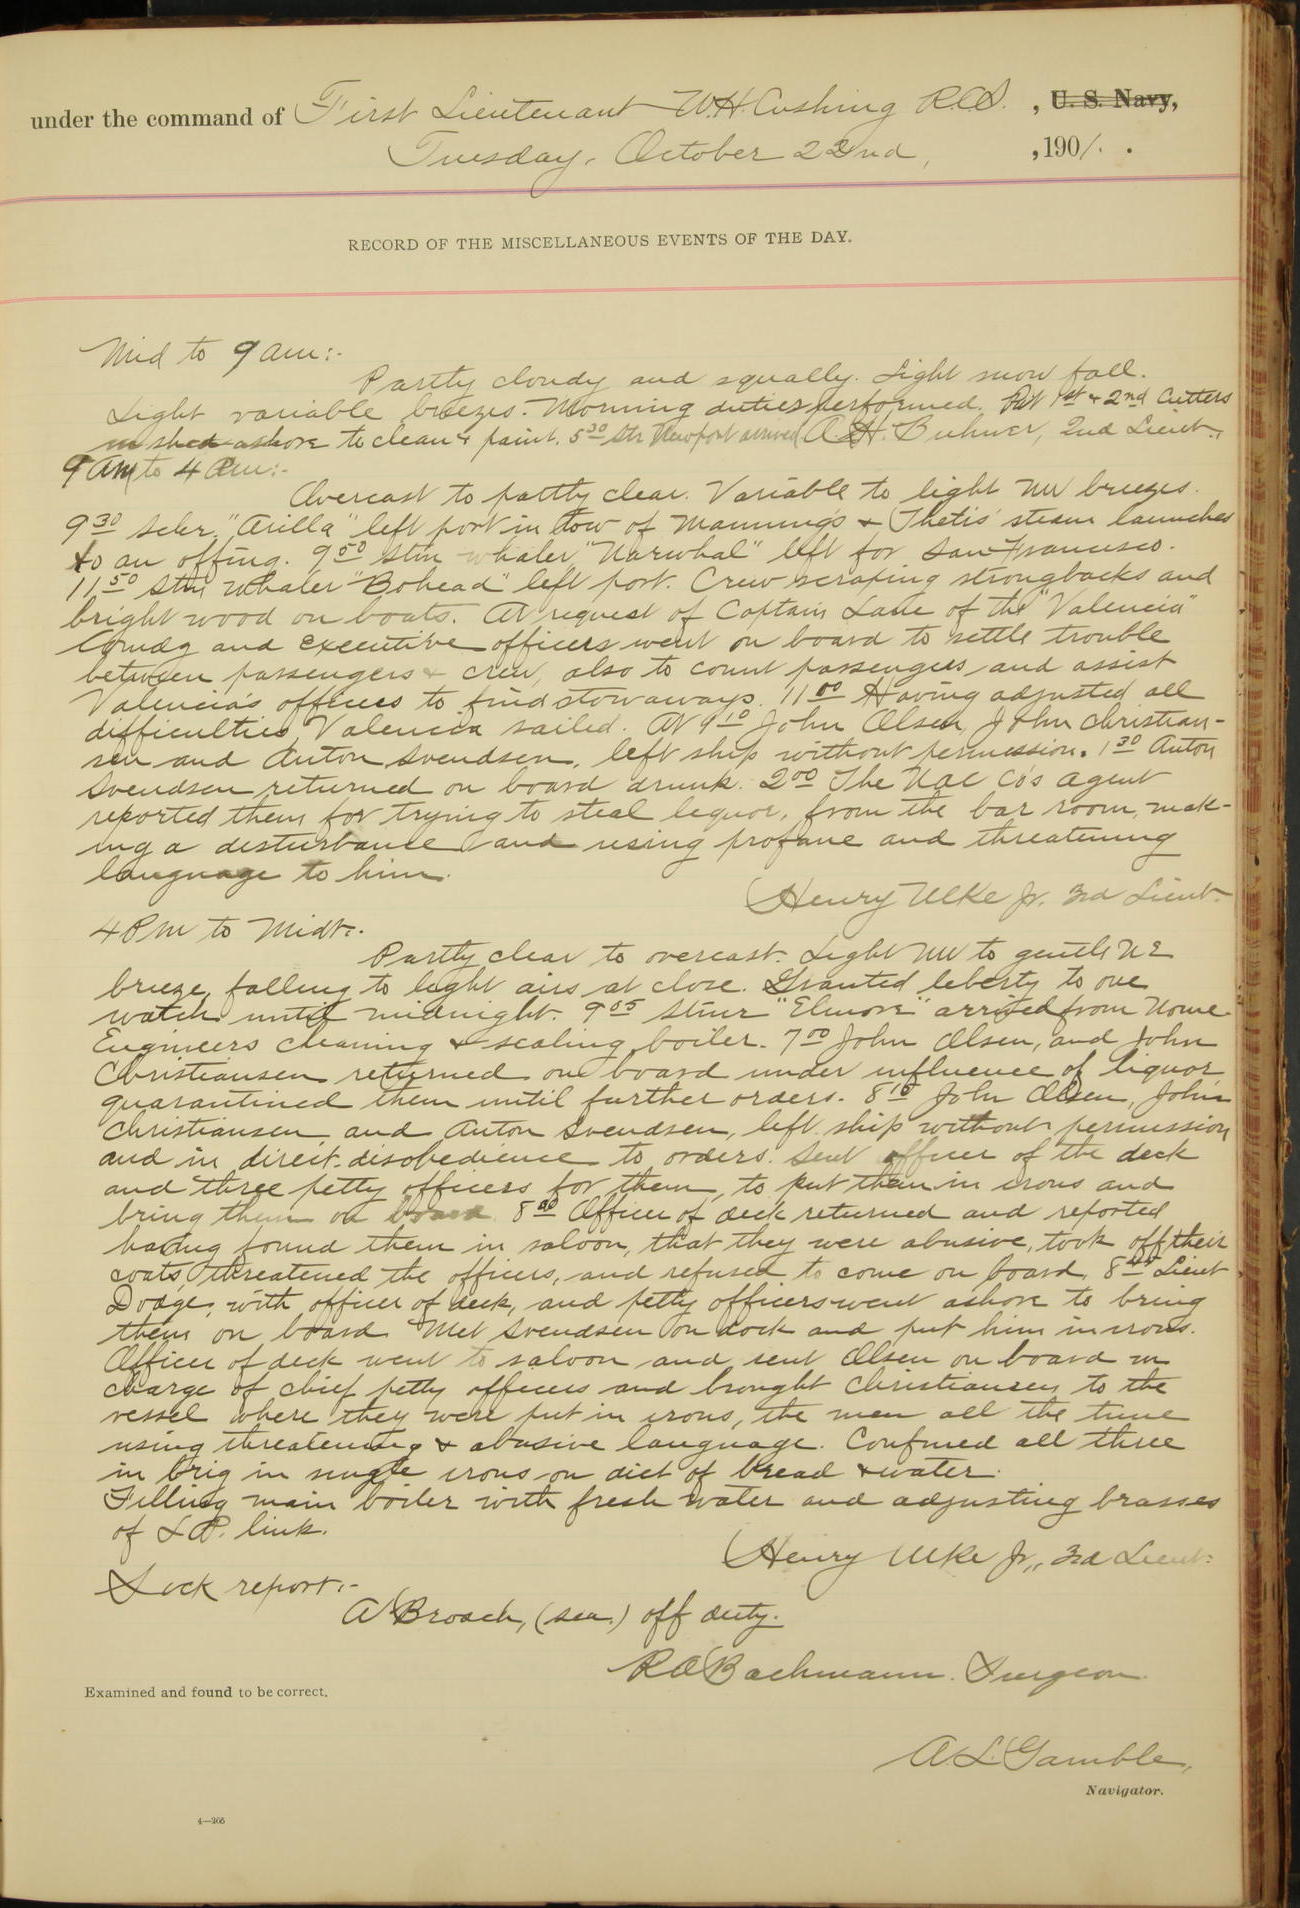 under the command of First Lieutenant W.H. Cushing R.C.S. , U. S. Navy,
Tuesday, October 22nd, , 1901.
RECORD OF THE MISCELLANEOUS EVENTS OF THE DAY.
Mid to 9 am:-
Partly cloudy and squally. Light snow fall.
Light variable breezes. Morning duties performed. Put 1st & 2nd Cutters
in shed ashore to clean & paint. 5 30 Str Newport arrived. 2nd Lieut.
9 Am to 4 Pm:-
Overcast to partly clear. Variable to light NW breezes.
9 30 Schr. "Arilla" left port in tow of Mannings & Thetis' steam launches
to an offing. 9 50 Stm whaler "Narwhal" left for San Francisco.
11 50 Stm Whaler "Bohead" left port. Crew scraping strongbacks and
bright wood on boats. At request of Captain Lane of the "Valencia"
Comdg and executive officers went on board to settle trouble
between passengers & crew, also to count passengers and assist
Valencia's officers to find stowaways. 11 00 Having adjusted all
difficulties Valencia sailed. At 9 10 John Olsen, John Christian-
sen and Anton Svendsen, left ship without permission. 1 30 Anton
Svendsen returned on board drunk. 2 00 The NAC Co's agent
reported them for trying to steal liquor, from the bar room, mak-
ing a disturbance and using profane and threatening
language to him.
Henry Ulke Jr. 3rd Lieut.
4 Pm to Midt:-
Partly clear to overcast. Light NW to gentle NE
breeze falling to light airs at close. Granted liberty to one
watch until midnight. 9 05 Stmr "Elmore" arrived from Nome.
Engineers cleaning & scaling boiler. 7 00 John Olsen, and John
Christiansen returned on board under influence of liquor,
quarantined them until further orders. 8 10 John Olsen, John
Christiansen, and Anton Svendsen, left ship without permission
and in direct disobedience to orders. Sent officer of the deck
and three petty officers for them, to put them in irons and
bring them on board. 8 Officer of deck returned and reported
having found them in saloon, that they were abusive, took off their
coats, threatened the officers, and refused to come on board. 8 Lieut
Dodge, with officer of deck, and petty officers went ashore to bring
them on board. Met Svendsen on dock and put him in irons.
Officer of deck went to saloon and sent Olsen on board in
charge of chief petty officers and brought Christiansen to the
vessel where they were put in irons, the men all the time
using threatening & abusive language. Confined all three
in brig in single irons on diet of bread & water.
Filling main boiler with fresh water and adjusting brasses
of L.P. link.
Henry Ulke Jr., 3rd Lieut.
Sick report:-
A Broach, (sea.) off duty.
R O Bachmann. Surgeon.
Examined and found to be correct.
A.L. Gamble,
Navigator.
4—205